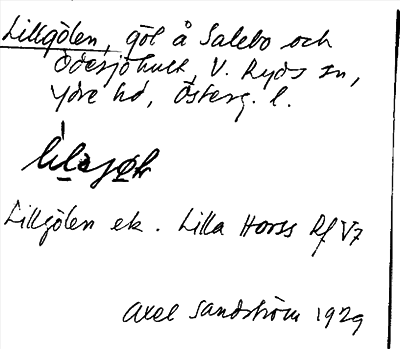 Lillgölen, göl å Salebo och
Ödesjöhult, V. Ryds sn,
Ydre hd, Österg. l.
Lillgölen ek. Lilla Horss Rf V7
Axel Sandström 1929